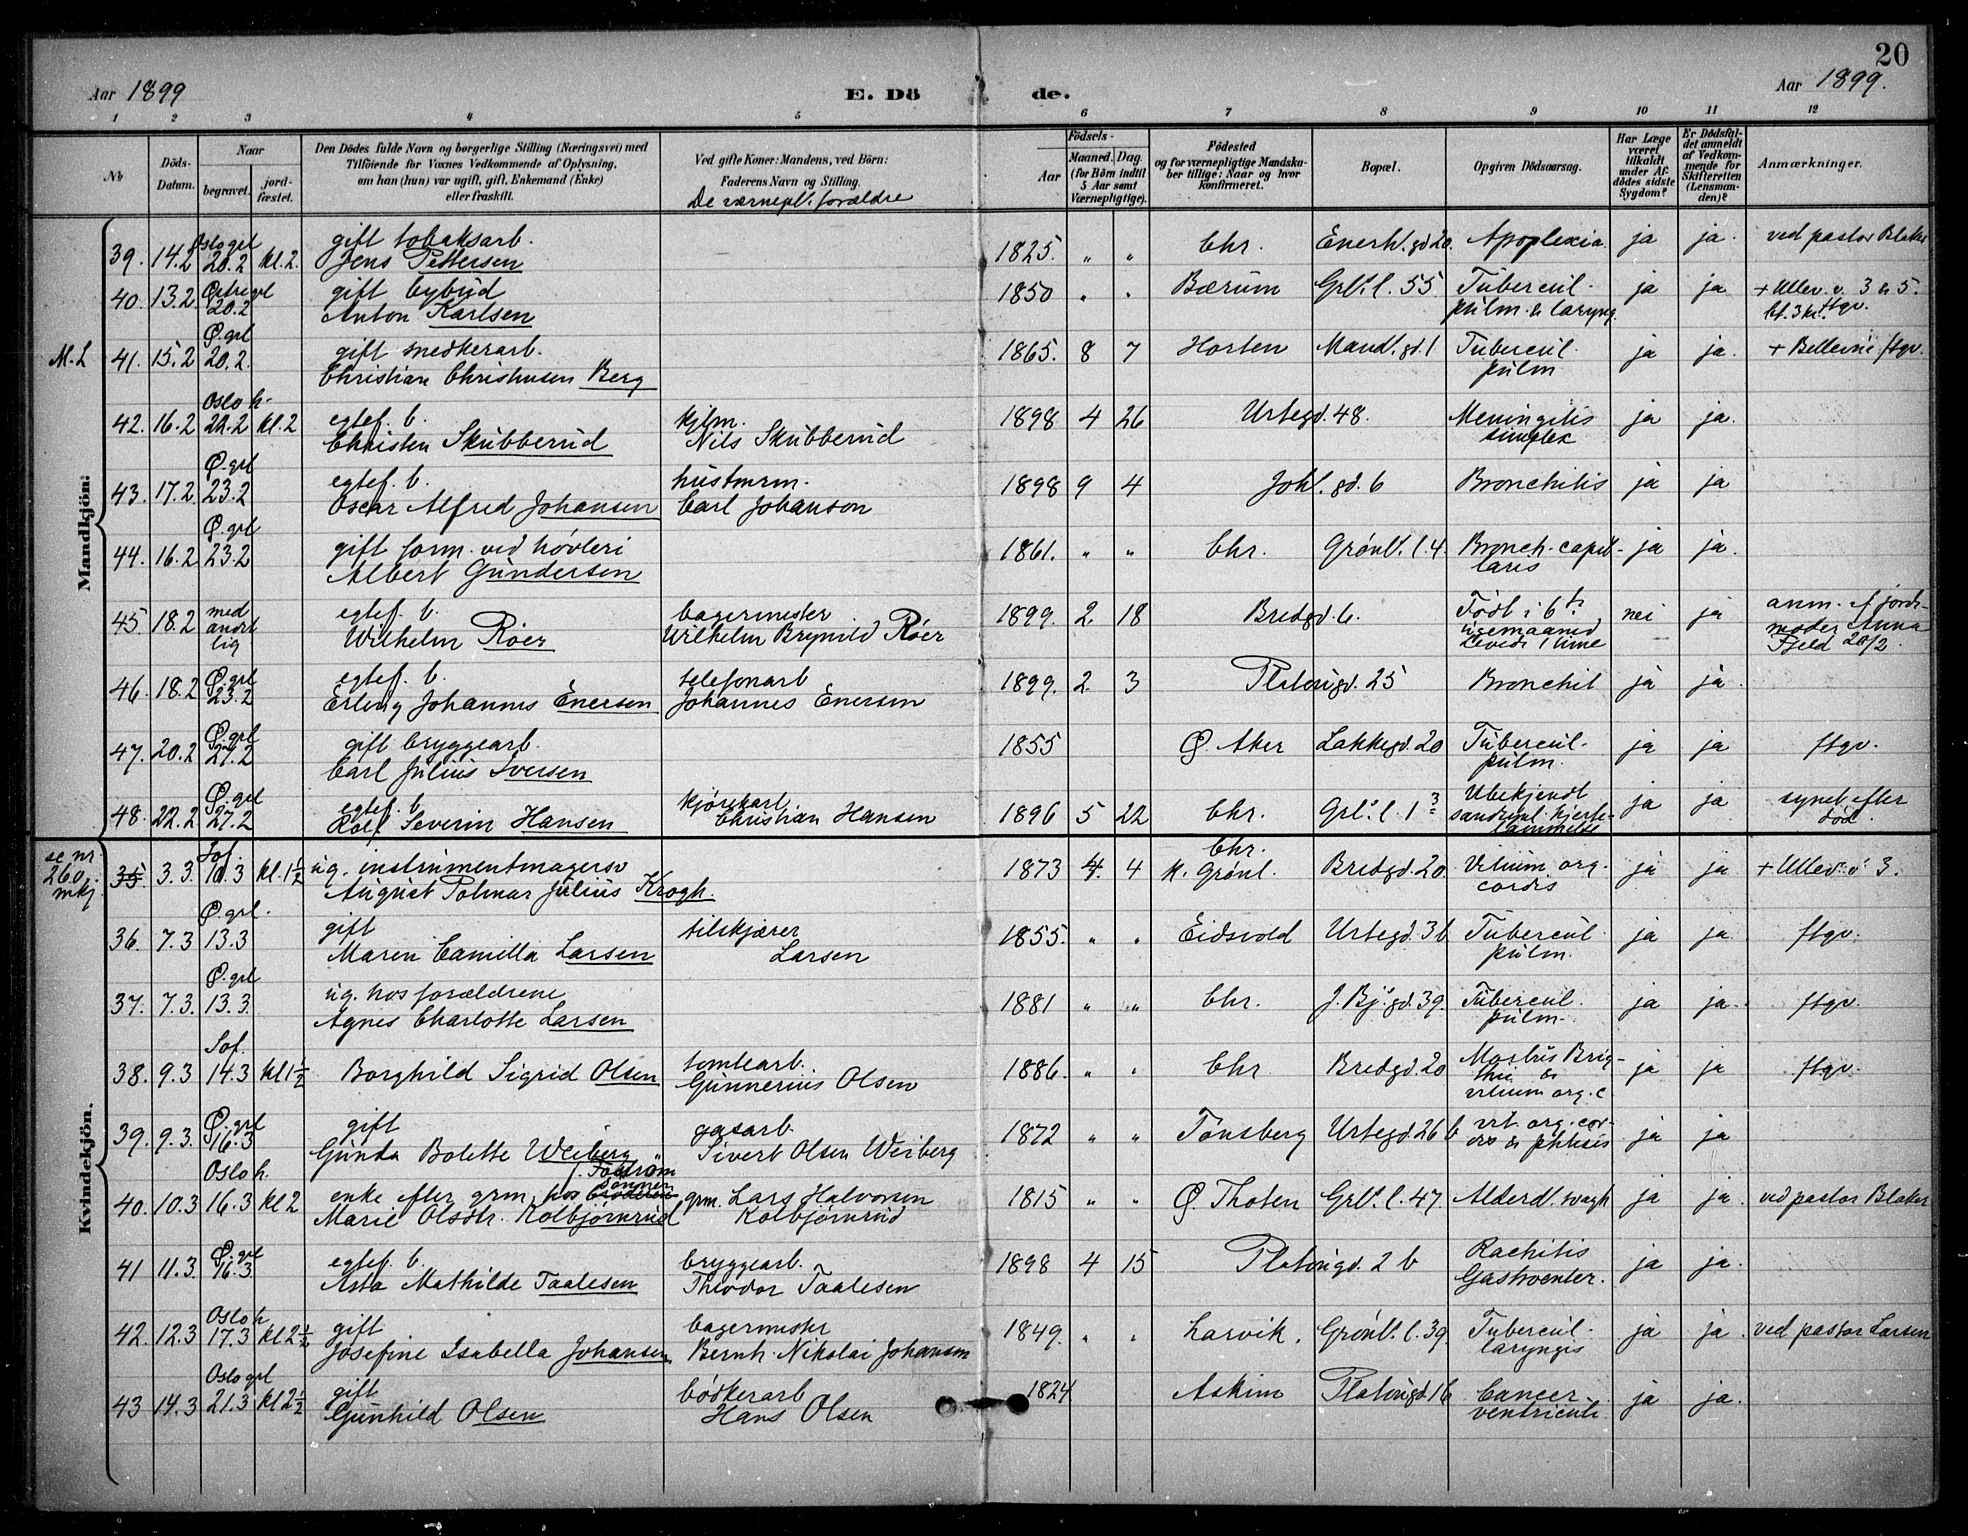 20
Aar 1899
E. Dö
de.
Aar 1899.
1 2 3 4 5 6 7 8 9 10 11 12
No
Döds-
Datum.
Naar
begravet.
jord-
fæstet.
Den Dödes fulde Navn og borgerlige Stilling (Næringsvei) med
Tilföiende for Voxnes Vedkommende af Oplysning,
om han (hun) var ugift, gift, Enkemand (Enke)
eller fraskilt.
Ved gifte Koner: Mandens, ved Börn:
Faderens Navn og Stilling.
De værnepl. forældre
Födsels-
Aar
Maaned. Dag.
(for Börn indtil
5 Aar samt
Værnepligtige).
Födested
og for værnepligtige Mandska-
ber tillige: Naar og hvor
konfirmeret.
Bopæl.
Opgiven Dödsaarsag.
Har Læge
været
tilkaldt
under Af-
dödes sidste
Sygdom?
Er Dödsfal-
det anmeldt
af Vedkom-
mende for
Skifteretten
(Lensman-
den)?
Anmærkninger.
Mandkjön:
39. 14.2 Oslo grl 20.2 kl. 2. gift tobaksarb.
Jens Pettersen 1825. " " Chr. Enerh. gd 20. Apoplexia ja ja. ved pastor Blaker
40. 13.2 20.2 gift bybud
Anton Karlsen 1850 " " Bærum Grl. l. 55 Tubercul.
pulm. & laryng. ja ja + Ullev. v. 3 & 5.
bt. 3 kr. ftgv.
M.L 41. 15.2 Ø. grl 20.2. gift snedkerarb.
Christian Christensen Berg 1865. 8 7 Horten Mandl. gd. 1 Tubercul.
pulm ja ja. + Bellevue ftgv.
42. 16.2 Oslo h. 22.2 kl. 2 egtef. b.
Christen Skubberud Nils Skubberud 1898 4 26 Urtegd. 48. Meningitis
simplex ja ja.
43. 17.2 Ø. grl 23.2 egtef. b.
Oscar Alfred Johansen
hustmrm.
Carl Johanson 1898 9 4 Joh. gd. 6 Bronchitis ja ja
44. 16.2 Ø. grl 23.2 gift form. ved høvleri
Albert Gundersen 1861. " " Chr. Grønl. l. 4. Bronch. capil-
laris ja ja.
45 18.2 med
andet
lig egtef. b.
Wilhelm Röer
bagermester
Wilhelm Brynild Röer 1899. 2. 18 Bredgd. 6. Født i 6te
ugemaaned
Levede 1 time nei ja anm. af jord-
moder Anna
Fjeld 20/2.
46. 18.2 Ø. grl 23.2 egtef. b.
Erling Johannes Enersen
telefonarb
Johannes Enersen 1899. 2. 3 Platousgd. 25 Bronchit ja ja
47. 20.2 Ø. grl 27.2 gift bryggearb.
Carl Julius Iversen 1855 Ø. Aker Lakkegd. 20 Tubercul.
pulm. ja ja ftgv.
48. 22.2 Ø. grl 27.2 egtef. b.
Rolf Severin Hansen
kjørekarl
Christian Hansen 1896 5 22 Chr. Grl. l. 13 Ubekjendt
sandsynl. hjerte-
lammelse ja ja synet efter
død.
Kvindekjön.
se nr.
260
mkj. 35 3.3. Sof. 10.3 kl. 1½ ug. instrumentmagersv
August Polmar Julius Krogh. 1873 4. 4 Chr.
k. Grønl. Bredgd. 20 Vitium org.
cordis ja ja + Ullev. v. 3.
36. 7.3 Ø. grl. 13.3 gift
Maren Camilla Larsen
tilskjærer
Larsen 1855. " " Eidsvold Urtegd. 3b Tubercul.
pulm. ja ja. ftgv.
37. 7.3. Ø. grl 13.3. ug. hos forældrene
Agnes Charlotte Larsen 1881 " " Chr. J. Bj. gd. 39. Tubercul.
pulm. ja ja. ftgv.
38. 9.3 Sof. 14.3 kl 1½ Borghild Sigrid Olsen
tomtearb.
Gunnerius Olsen 1886. " " Chr Bredgd. 20 Morbus Brig-
thii &
vitium org. c ja ja ftgv.
39. 9.3. Ø. grl 16.3 gift
Gunda Bolette Weiberg
gasarb.
Sivert Olsen Weiberg 1872 " " Tønsberg Urtegd. 26 b vit. org. cor-
dis & phtisis ja ja
40. 10.3 Oslo h. 16.3 kl 2 enke efter grm. hos sønnen
Marie Olsdtr. Kolbjørnrud
grm. Lars Halvorsen
Kolbjørnrud 1815 " " Ø. Thoten Grl. l. 47 Alderd. svagh ja ja. ved pastor Blaker
41 11.3 Ø. grl 16.3. egtef. b.
Asta Mathilde Taalesen
bryggearb.
Theodor Taalesen 1898 4 15 Platousgd. 2 b Rachitis
Gastroenter. ja ja.
42. 12.3 Oslo h 17.3 kl 2½ gift
Josefine Isabella Johansen
bagermester
Bernh. Nikolai Johansen 1849. " " Larvik. Grønl. l. 39. Tubercul.
laryngis ja ja. ved pastor Larsen
43 14.3 Oslo grl 21.3 kl 2½ gift
Gunhild Olsen
bødkerarb
Hans Olsen 1824 Askim Platousgd. 16 Cancer
ventriculi ja ja.